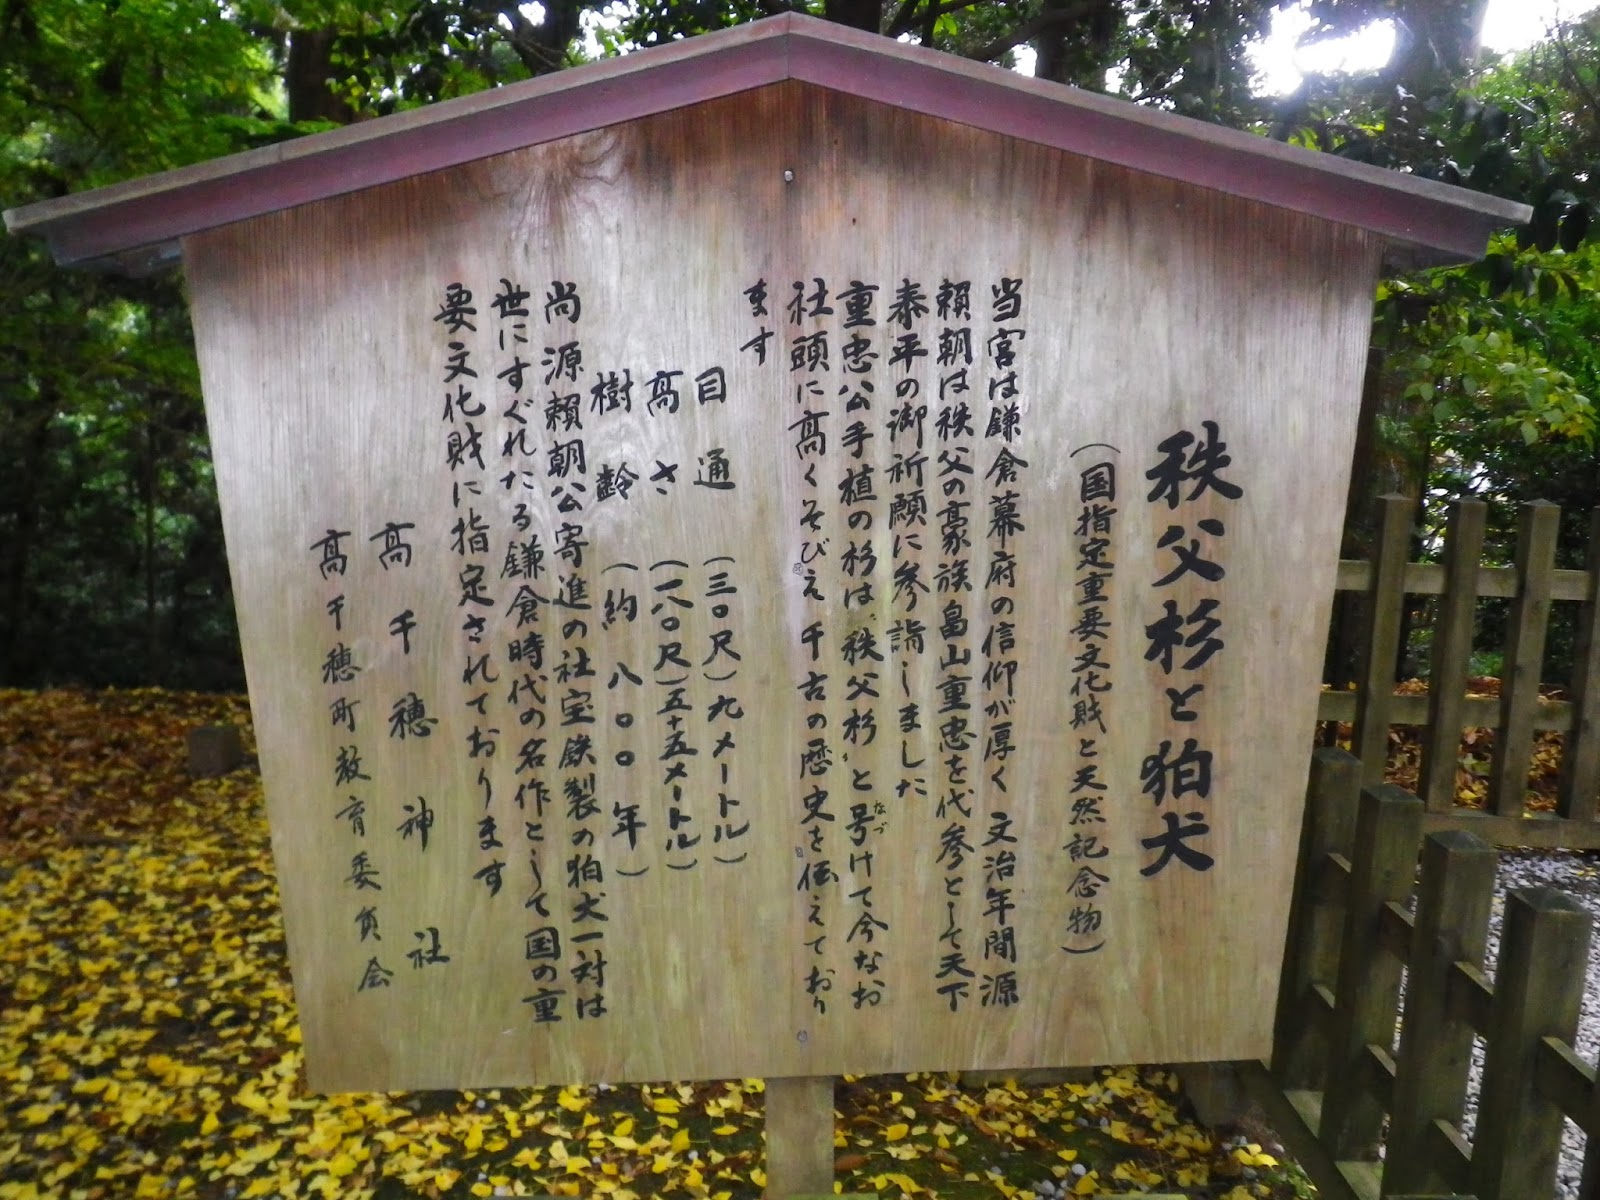 秩父杉と狛犬
（国指定重要文化財と天然記念物）
当宮は鎌倉幕府の信仰が厚く 文治年間 源
頼朝は秩父の豪族畠山重忠を代参として天下
泰平の御祈願に参詣しました
重忠公手植の杉は〝秩父杉〟と号けて今なお
なづ
社頭に高くそびえ 千古の歴史を伝えており
ます
目通 （三〇尺）九メートル）
高さ （一八〇尺）五十五メートル）
樹齢 （約 八〇〇年）
尚源頼朝公寄進の社宝鉄製の狛犬一対は
世にすぐれたる鎌倉時代の名作として国の重
要文化財に指定されております
高千穂神社
高千穂町教育委員会